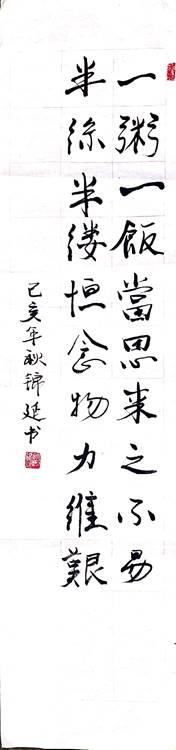 一粥一飯當思来之不易
半絲半缕恒念物力維艱
己亥年秋锦延书